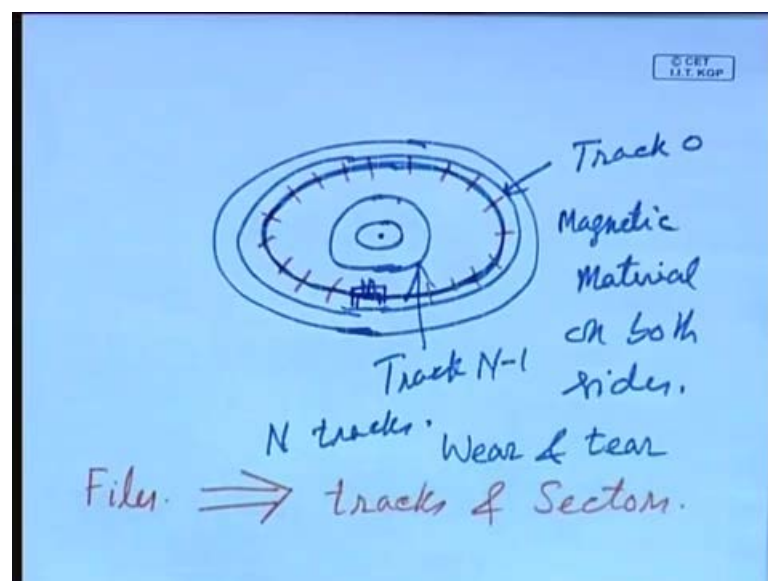 © CET
I.I.T. KGP
Track 0
Magnetic
Material
on both
sides.
Track N-1
N tracks.
Wear & tear
Files. ⇒ tracks & Sectors.